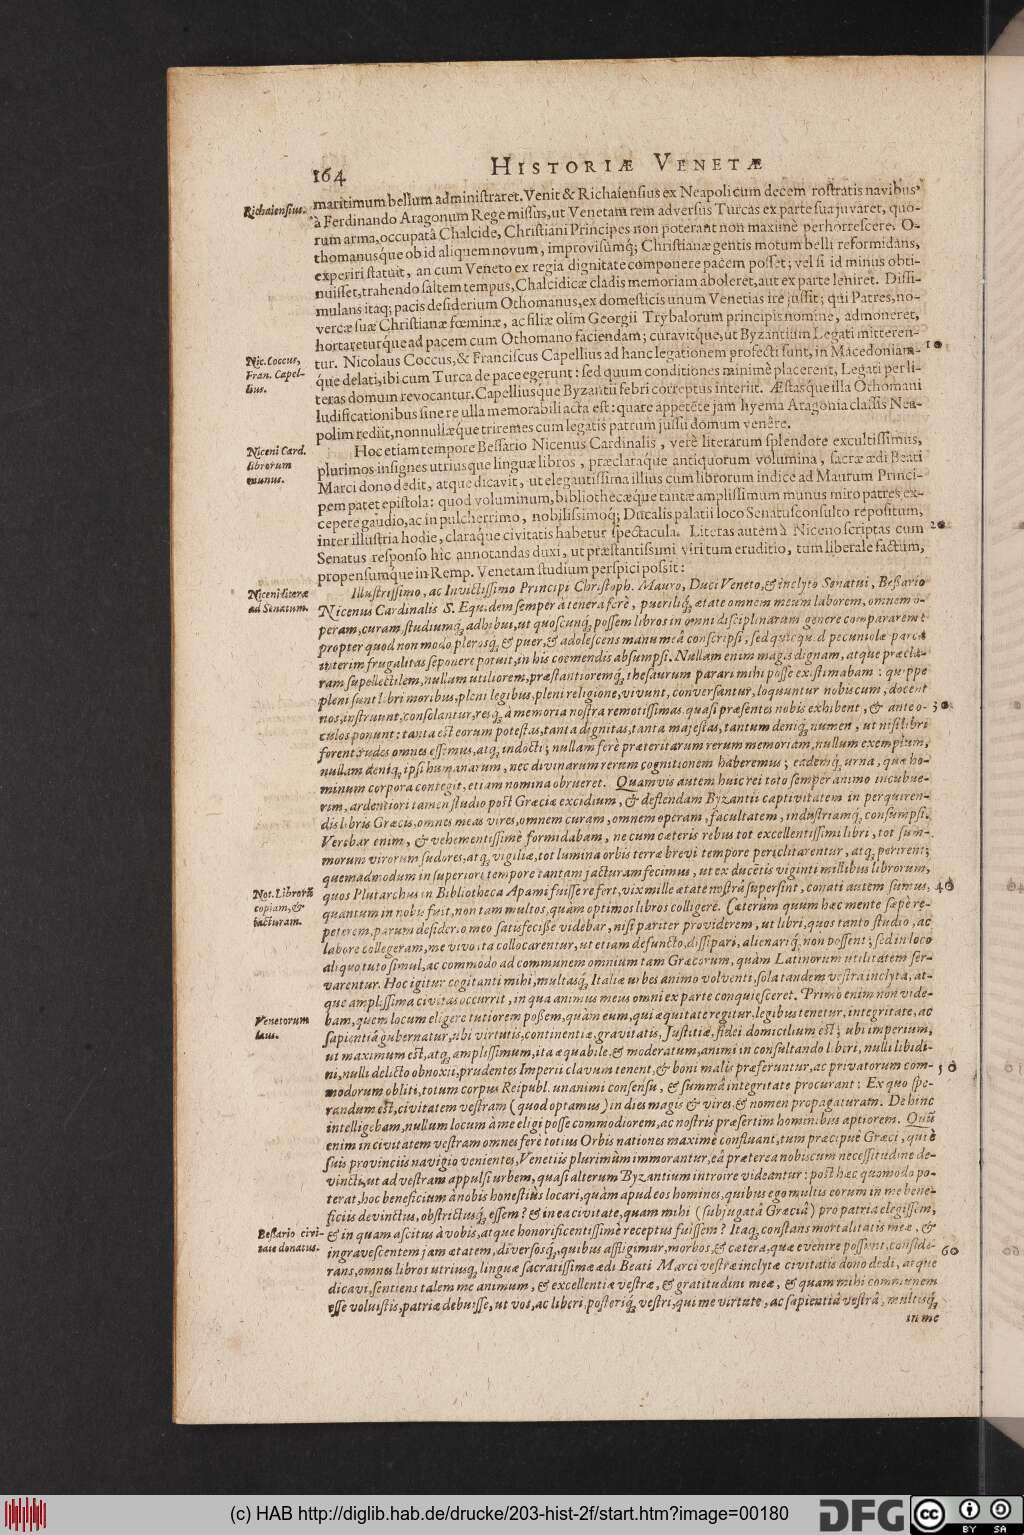 164
HISTORIÆ VENETÆ
Richaiensius.
maritimum bellum administraret. Venit & Richaiensius ex Neapoli cum decem rostratis navibus,
à Ferdinando Aragonum Rege missus, ut Venetam rem adversus Turcas ex parte sua juvaret, quo-
rum arma, occupatâ Chalcide, Christiani Principes non poterant non maximè perhorrescere. O-
thomanusque ob id aliquem novum, improvisumq; Christianæ gentis motum belli reformidans,
experiri statuit, an cum Veneto ex regia dignitate componere pacem posset; vel si id minus obti-
nuisset, trahendo saltem tempus, Chalcidicæ cladis memoriam aboleret, aut ex parte leniret. Dissi-
mulans itaq; pacis desiderium Othomanus, ex domesticis unum Venetias ire jussit; qui Patres, no-
vercæ suæ Christianæ fœminæ, ac filiæ olim Georgii Trybalorum principis nomine, admoneret,
hortareturque ad pacem cum Othomano faciendam; curavitque, ut Byzantium Legati mitteren-
Nic. Coccus,
Fran. Capel-
lius.
tur. Nicolaus Coccus, & Franciscus Capellius ad hanc legationem profecti sunt, in Macedoniam-
10
que delati, ibi cum Turca de pace egerunt: sed quum conditiones minimè placerent, Legati per li-
teras domum revocantur. Capelliusque Byzantii febri correptus interiit. Æstasque illa Othomani
ludificationibus sine re ulla memorabili acta est: quare appetēte jam hyema Aragonia classis Nea-
polim rediit, nonnullæque triremes cum legatis patrum jussu domum venêre.
Niceni Card.
librorum
munus.
Hoc etiam tempore Bessario Nicenus Cardinalis, verè literarum splendore excultissimus,
plurimos insignes utriusque linguæ libros, præclaraque antiquorum volumina, sacræ ædi Beati
Marci dono dedit, atque dicavit, ut elegantissima illius cum librorum indice ad Maurum Princi-
pem patet epistola: quod voluminum, bibliothecæque tantæ amplissimum munus miro patres ex-
cepere gaudio, ac in pulcherrimo, nobilissimoq; Ducalis palatii loco Senatusconsulto repositum,
inter illustria hodie, claraque civitatis habetur spectacula. Literas autem à Niceno scriptas cum
20
Senatus responso hic annotandas duxi, ut præstantissimi viri tum eruditio, tum liberale factum,
propensumque in Remp. Venetam studium perspici possit:
Niceni literæ
ad Senatum.
Illustrissimo, ac Invictissimo Principi Christoph. Mauro, Duci Veneto, & inclyto Senatui, Bessario
Nicenus Cardinalis S. Equidem semper à tenera ferè, puerilíq; ætate omnem meum laborem, omnem o-
peram, curam, studiumq; adhibui, ut quoscunq; possem libros in omni disciplinarum genere compararem:
propter quod non modo plerosq; & puer, & adolescens manu meâ conscripsi, sed quicquid pecuniolæ parca
interim frugalitas seponere potuit, in his coemendis absumpsi. Nullam enim magis dignam, atque præcla-
ram supellectilem, nullum utiliorem, præstantioremq; thesaurum parari mihi posse existimabam: quippe
pleni sunt libri moribus, pleni legibus, pleni religione, vivunt, conversantur, loquuntur nobiscum, docent
nos, instruunt, consolantur, resq; à memoria nostra remotissimas quasi præsentes nobis exhibent, & ante o-
30
culos ponunt: tanta est eorum potestas, tanta dignitas, tanta majestas, tantum deniq; numen, ut nisi libri
forent, rudes omnes essemus, atq; indocti; nullam ferè præteritarum rerum memoriam, nullum exemplum,
nullam deniq; ipsi humanarum, nec divinarum rerum cognitionem haberemus; eademq; urna, quæ ho-
minum corpora contegit, etiam nomina obrueret. Quamvis autem huic rei toto semper animo incubue-
rim, ardentiori tamen studio post Græciæ excidium, & deflendam Byzantii captivitatem in perquiren-
dis libris Græcis, omnes meas vires, omnem curam, omnem operam, facultatem, industriamq; consumpsi.
Verebar enim, & vehementissimè formidabam, ne cum cæteris rebus tot excellentissimi libri, tot sum-
morum virorum sudores, atq; vigiliæ, tot lumina orbis terræ brevi tempore periclitarentur, atq; perirent;
quemadmodum in superiori tempore tantam jacturam fecimus, ut ex ducētis viginti millibus librorum,
Not. Librorū
copiam, &
jacturam.
quos Plutarchus in Bibliotheca Apami fuisse refert, vix mille ætate nostrâ supersint, conati autem sumus,
40
quantum in nobis fuit, non tam multos, quàm optimos libros colligere. Cæterùm quum hæc mente sæpè re-
peterem, parum desiderio meo satisfecisse videbar, nisi pariter providerem, ut libri, quos tanto studio, ac
labore collegeram, me vivo ita collocarentur, ut etiam defuncto, dissipari, alienariq; non possent; sed in loco
aliquo tuto simul, ac commodo ad communem omnium tam Græcorum, quàm Latinorum utilitatem ser-
varentur. Hoc igitur cogitanti mihi, multasq; Italiæ urbes animo volventi, sola tandem vestra inclyta, at-
que amplissima civitas occurrit, in qua animus meus omni ex parte conquiesceret. Primò enim non vide-
Venetorum
laus.
bam, quem locum eligere tutiorem possem, quàm eum, qui æquitate regitur, legibus tenetur, integritate, ac
sapientiâ gubernatur, ubi virtutis, continentiæ, gravitatis, Justitiæ, fidei domicilium est; ubi imperium,
ut maximum est, atq; amplissimum, ita æquabile, & moderatum, animi in consultando liberi, nulli libidi-
ni, nulli delicto obnoxii, prudentes Imperii clavum tenent, & boni malis præferuntur, ac privatorum com-
50
modorum obliti, totum corpus Reipubl. unanimi consensu, & summâ integritate procurant: Ex quo spe-
randum est, civitatem vestram (quod optamus) in dies magis & vires, & nomen propagaturam. Dehinc
intelligebam, nullum locum à me eligi posse commodiorem, ac nostris præsertim hominibus aptiorem. Quū
enim in civitatem vestram omnes ferè totius Orbis nationes maximè confluant, tum præcipuè Græci, qui è
suis provinciis navigio venientes, Venetiis plurimùm immorantur, eâ præterea nobiscum necessitudine de-
vincti, ut ad vestram appulsi urbem, quasi alterum Byzantium introire videantur: post hæc quomodo po-
terat, hoc beneficium à nobis honestiùs locari, quàm apud eos homines, quibus ego multis eorum in me bene-
ficiis devinctus, obstrictusq; essem? & in ea civitate, quam mihi (subjugatâ Græciâ) pro patria elegissem,
Bessario civi-
tate donatus.
& in quam ascitus à vobis, atque honorificentissimè receptus fuissem? Itaq; constans mortalitatis meæ, &
ingravescentem jam ætatem, diversosq;, quibus affligimur, morbos, & cætera, quæ evenire possent, conside-
60
rans, omnes libros utriusq; linguæ sacratissimæ ædi Beati Marci vestræ inclytæ civitatis dono dedi, atque
dicavi, sentiens talem me animum, & excellentiæ vestræ, & gratitudini meæ, & quam mihi communem
esse voluistis, patriæ debuisse, ut vos, ac liberi, posteriq; vestri, qui me virtute, ac sapientiâ vestrâ, multisq;
in me
(c) HAB http://diglib.hab.de/drucke/203-hist-2f/start.htm?image=00180
DFG
cc BY SA